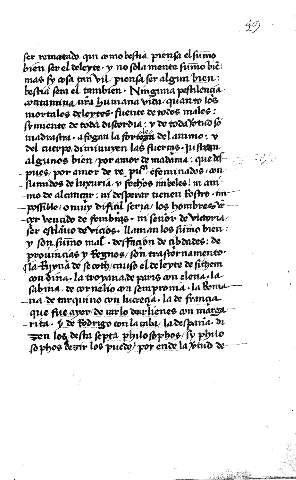 49
ser rematado qui como bestia piensa el sumo
bien ser el deleyte · y no sola mente sumo bie
mas sy cosa tan vil piensa ser algun bien :
bestia sera el tambien · Ninguna pestilencia
contamina una humana vida · quanto los
mortales deleytes · fuente de todos males :
symiente de toda discordia : y de toda
madrastra · del animo : y
del cuerpo diminuyen las fuerças ·
algunos bien · por amor de madama : que des
pues · por amor de efeminados · con
sumidos de luxuria · y fechos ynbeles : ni ani
mo de alcançar : ni desperar tienen · ym
possible · o muy dificil seria · los hombres
çer vencido de fembras · ni señor de vitoria
ser esclavo de vicios · llaman los sumo bien :
y son sumo mal · de cibdades : de
provincias y Regnos · son trastornamento ·
la Ruyna de causo el deleyte de sichem
con dina · la troyana de paris con elena · la
sabina · de cornelio con sempronia · la Roma
na de tarquino con lucrecia · la de francia
que fue ayer · de carlo dorliens con marga
rita · y de Rodrigo con la caba · la despaña · di
zen los desta septa philosophos · sy philo
sophos dezir los puedo / por ende la de